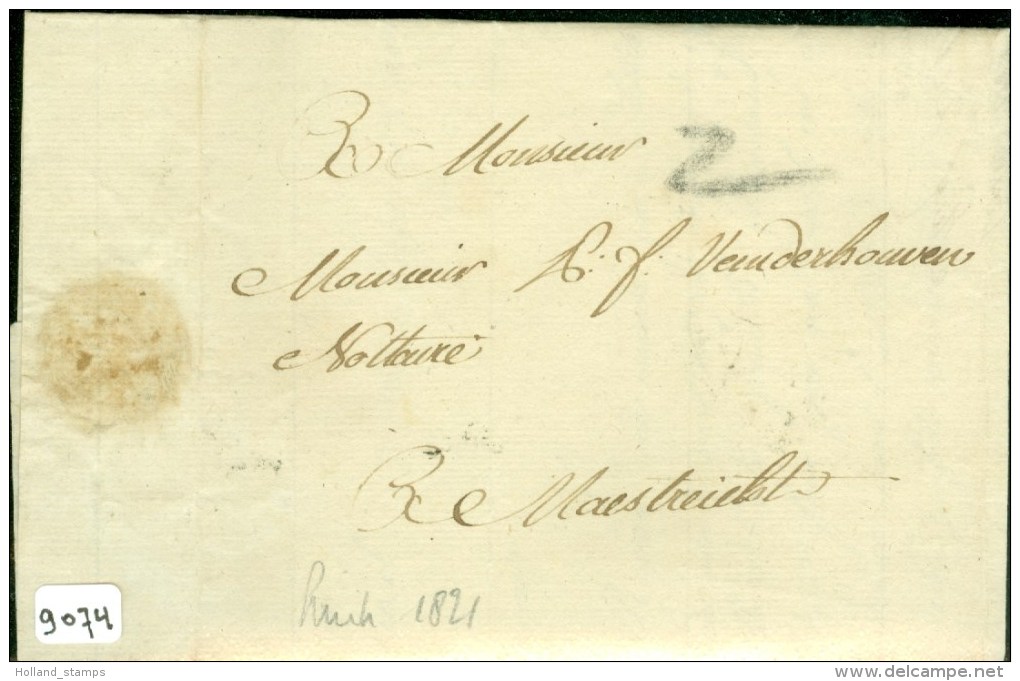 A Monsieur 2
Monsieur P: f: Vanderhouven
Nottaire
A Maestreicht
1821
9074
Holland_stamps
www.delcampe.net